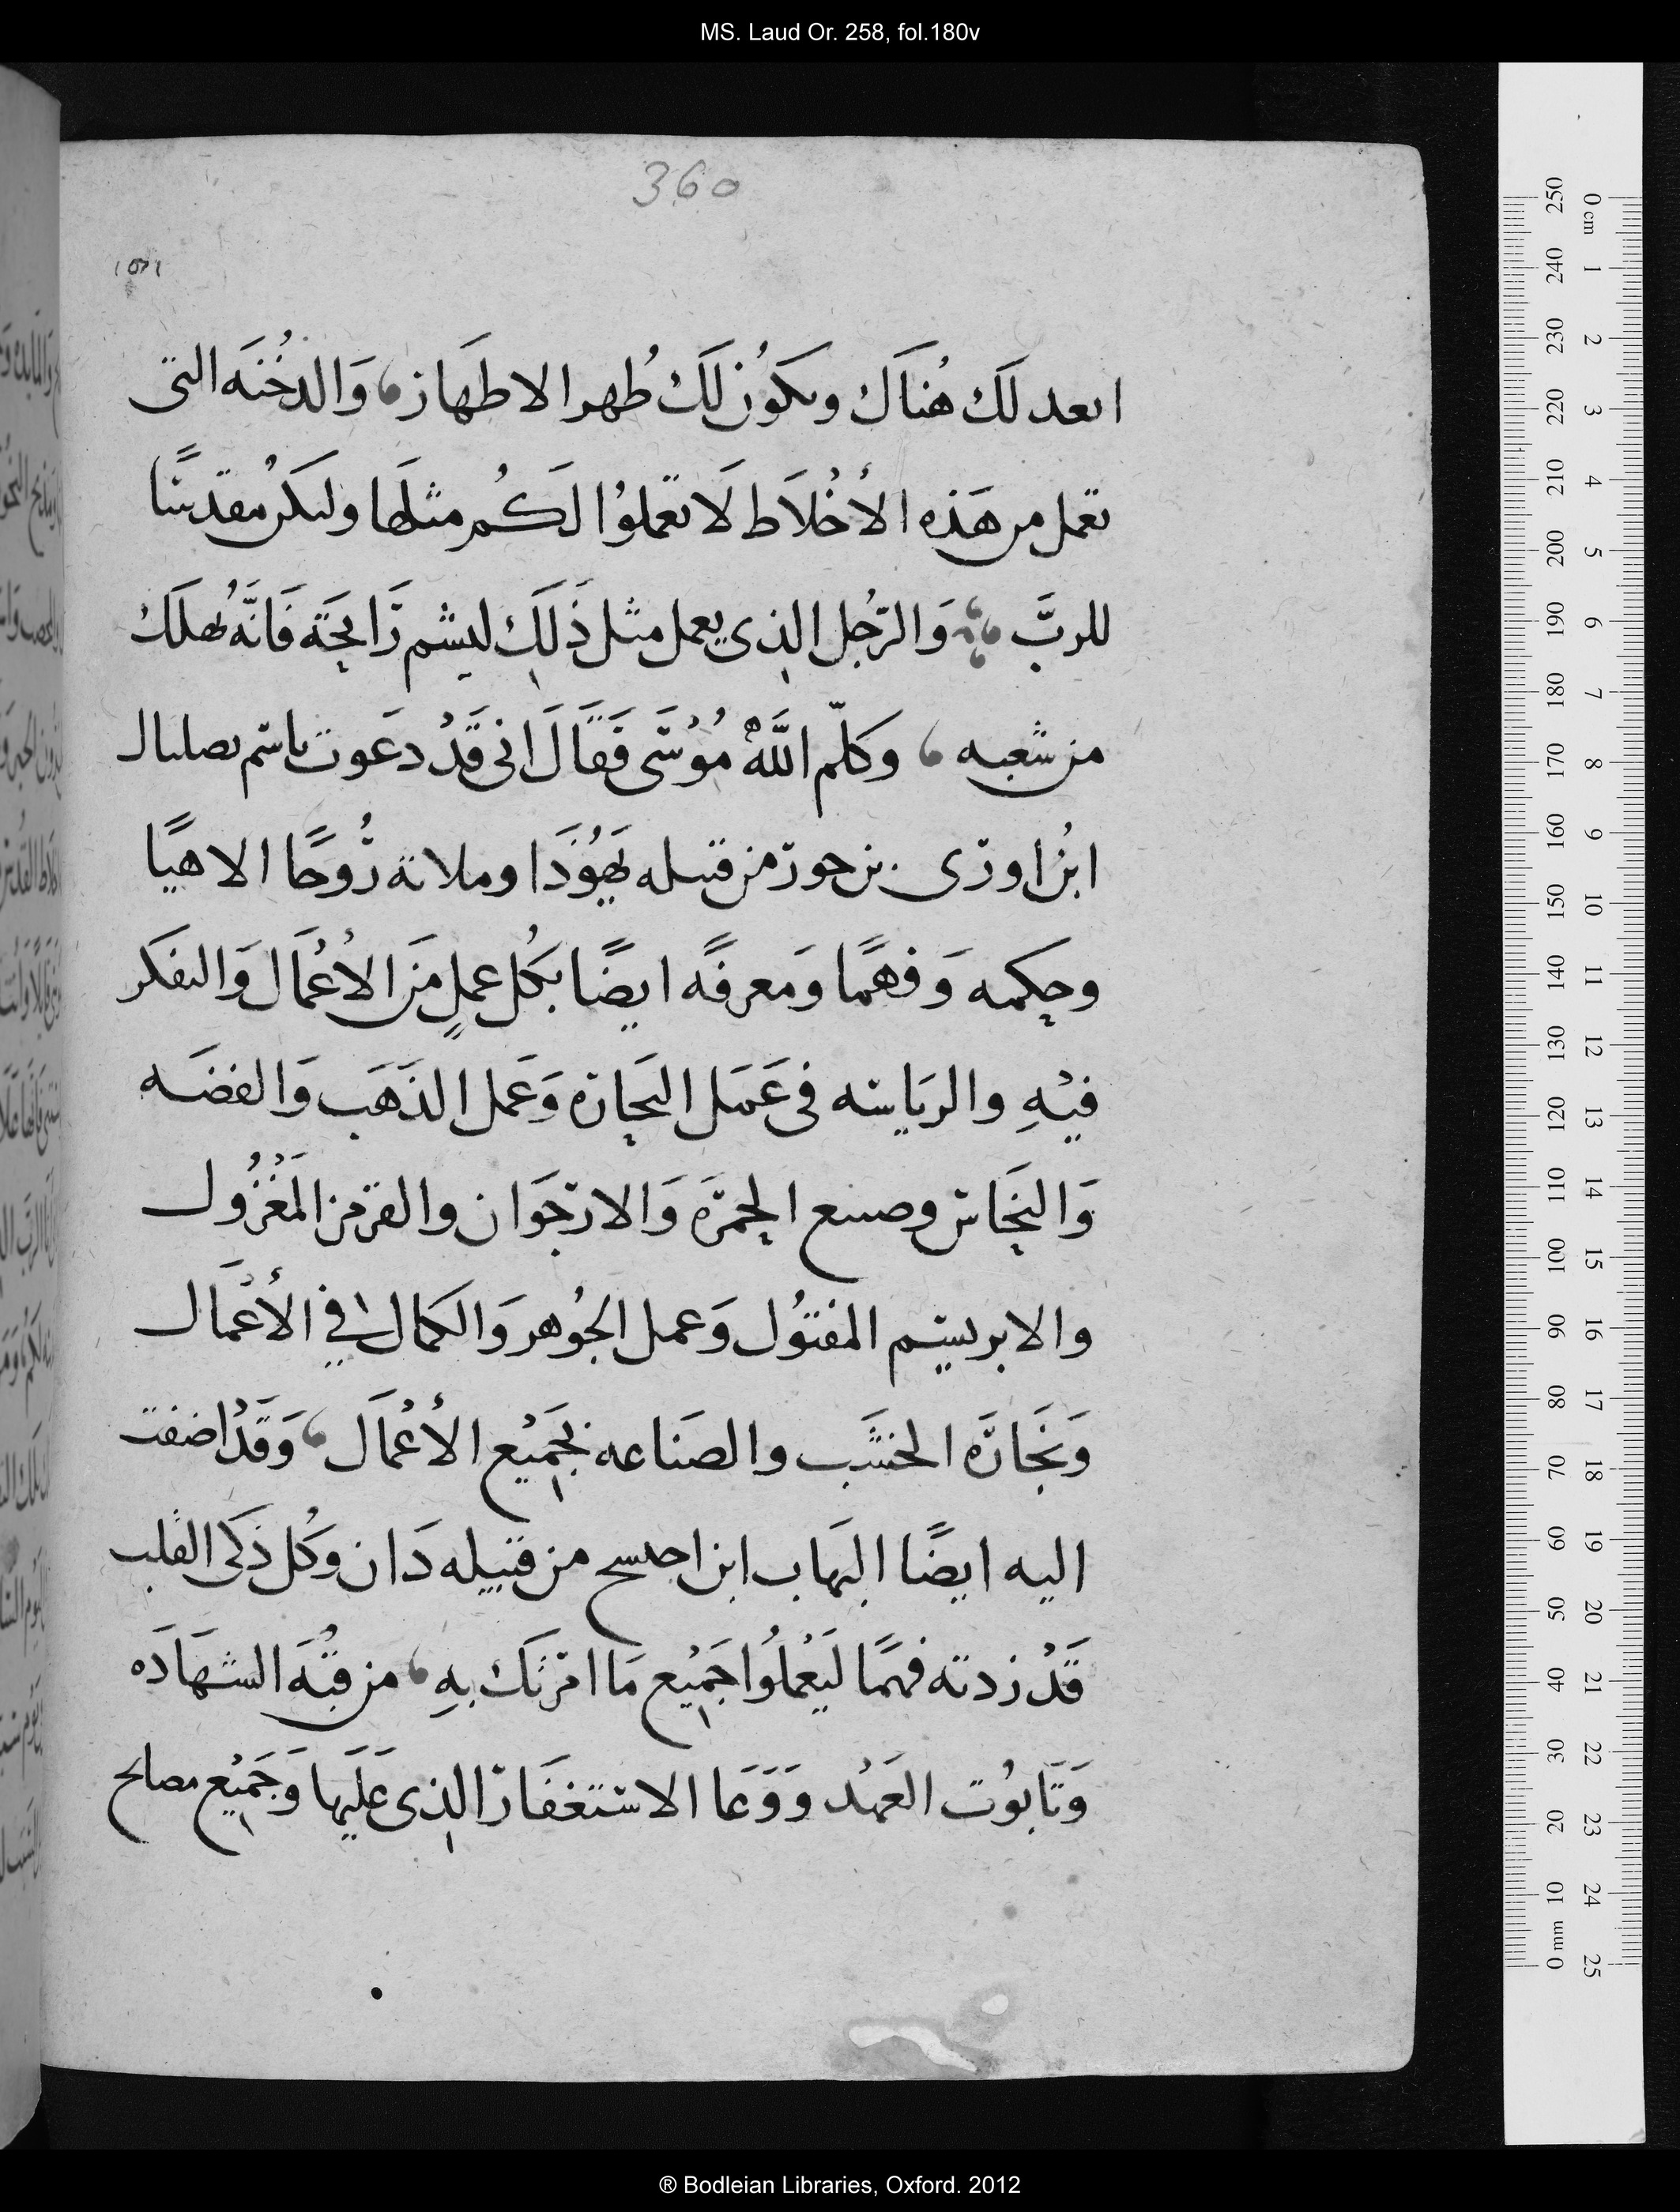 MS. Laud Or. 258, fol.180v
360
اتعد لَك هُنَاكَ ويكوُن لَكَ طُهر الاطهَار، وَالدخُنَه التي
تعمل من هَذه الأخْلاَط لاَ تعملوُا لَكُم مثلهَا وليكن مقدسًا
للربَّ وَالرّجُل الذي يعمل مثل ذَلَك ليشم رَايحَة فَانَّهُ يهلَك
من شعبه ، وكلّم اللَّهُ مُوُسَى فَقَالَ اني قَدْ دعَوت باسم بصليال
ابنُ اورى بن حور من قبيله يَهُوُذَا وملاته رُوحًا الاهيًا
وحكمه وَفهمًا وَمَعرفَه ايضًا بكُل عملٍ مَن الأعْمَال وَالتفكر
فيْهِ والريَاسه فى عَمَل النجَاره وَعَمل الذَهَب وَالفضَه
وَالنحَاس وصنع الحمرَه وَالارجَوَان والقرمز المَغْزُول
والابريسم المفتوُل وَعمل الجوُهر وَالكمال في الأعْمَال
وَنجَارَه الخشَب والصنَاعه بجَميْع الأعْمَال ، وَقَدْ اضفت
اليه ايضًا اليهَاب ابن احيسمح من قبيله دَان وَكُل ذكَى القلب
قَدْ زدته فهمًا ليَعْملُوا جَميْع مَا امَرتَك بهِ ، من قبُهَ الشهَادَه
وَتَابُوت العَهْد وَوَعَا الاستغفَار الذى عَلَيها وَجَميْع مصالح
0 cm 1 2 3 4 5 6 7 8 9 10 11 12 13 14 15 16 17 18 19 20 21 22 23 24 25
250 240 230 220 210 200 190 180 170 160 150 140 130 120 110 100 90 80 70 60 50 40 30 20 10 0 mm
® Bodleian Libraries, Oxford. 2012